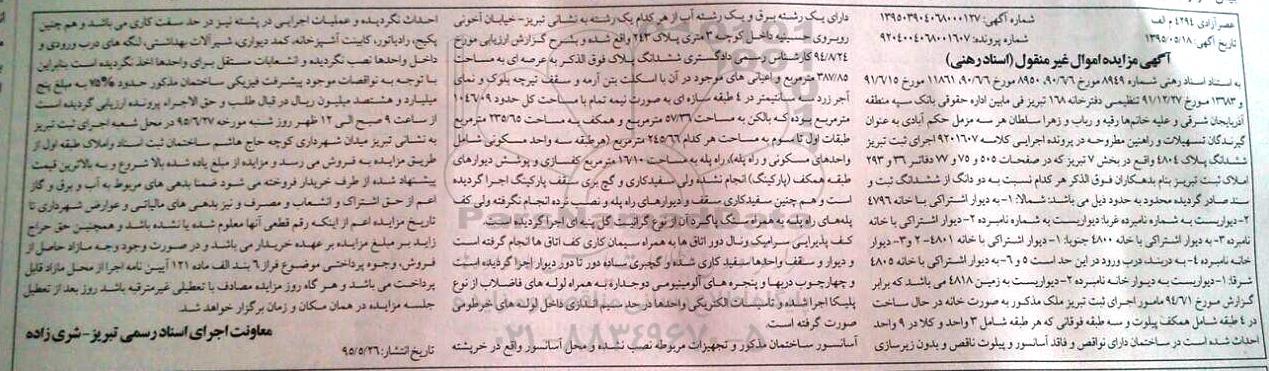 عصر آزادی ۴۲۹۴ م الف
تاریخ آگهی: ۱۳۹۵/۰۵/۱۸
شماره آگهی: ۱۳۹۵۰۳۹۰۴۰۶۸۰۰۰۱۲۷
شماره پرونده: ۹۲۰۴۰۰۴۰۶۸۰۰۱۶۰۷
آگهی مزایده اموال غیر منقول (اسناد رهنی)
به استناد اسناد رهنی شماره ۸۹۴۹ مورخ ۹۰/۶/۶، ۸۹۵۰ مورخ ۹۰/۶/۶، ۱۱۸۶۱ مورخ ۹۱/۶/۱۵
و ۱۳۸۸۳ مورخ ۹۱/۱۲/۲۷ تنظیمی دفترخانه ۱۶۸ تبریز فی مابین اداره حقوقی بانک سپه منطقه
آذربایجان شرقی و علیه خانم‌ها رقیه و رباب و زهرا سلطان هر سه مزمل حکم آبادی به عنوان
گیرندگان تسهیلات و راهنین مطروحه در پرونده اجرایی کلاسه ۹۲۰۱۶۰۷ اجرای ثبت تبریز
ششدانگ پلاک ۴۸۰۴ واقع در بخش ۷ تبریز که در صفحات ۵۰۵ و ۷۵ و ۷۷ دفاتر ۳۶ و ۲۹۳
املاک ثبت تبریز بنام بدهکاران فوق الذکر هر کدام نسبت به دو دانگ از ششدانگ ثبت و
سند صادر گردیده محدود به حدود ذیل می باشد: شمالا: ۱- به دیوار اشتراکی با خانه ۴۷۹۶
۲- دیواریست به شماره نامبرده غربا: دیواریست به شماره نامبرده ۲- دیوار اشتراکی با خانه
نامبرده ۳- به دیوار اشتراکی با خانه ۴۸۰۰ جنوبا: ۱- دیوار اشتراکی با خانه ۴۸۰۱- ۲ و۳- دیوار
خانه نامبرده ۴- به دربند، درب ورود در این حد است ۵ و ۶- به دیوار اشتراکی با خانه ۴۸۰۵
شرقا: ۱- دیواریست به دیوار خانه نامبرده ۲- دیواریست به زمین ۴۸۱۸ می باشد که برابر
گزارش مورخ ۹۴/۶/۱ مامور اجرای ثبت تبریز ملک مذکور به صورت خانه در حال ساخت
در ۴ طبقه شامل همکف پیلوت و سه طبقه فوقانی که هر طبقه شامل ۳ واحد و کلا در ۹ واحد
احداث شده است در ساختمان دارای نواقص و فاقد آسانسور و پیلوت ناقص و بدون زیرسازی
دارای یک رشته برق و یک رشته آب از هر کدام یک رشته به نشانی تبریز- خیابان آخونی
روبروی حسینیه داخل کوچه ۳ متری پلاک ۲۴۳ واقع شده و بشرح گزارش ارزیابی مورخ
۹۴/۸/۲۴ کارشناس رسمی دادگستری ششدانگ پلاک فوق الذکر به عرصه ای به مساحت
۳۸۷/۸۵ مترمربع و اعیانی های موجود در آن با اسکلت بتن آرمه و سقف تیرچه بلوک و نمای
آجر زرد سه سانتیمتر در ۴ طبقه سازه ای به صورت نیمه تمام با مساحت کل حدود ۱۰۴۶/۰۹
مترمربع بوده که بالکن به مساحت ۵۷/۳۶ مترمربع و همکف به مساحت ۲۳۵/۶۵ مترمربع
طبقات اول تا سوم به مساحت هر کدام ۲۴۵/۶۶ متر مربع (هرطبقه سه واحد مسکونی شامل
واحدهای مسکونی و راه پله)، راه پله به مساحت ۱۶/۱۰ مترمربع کفسازی و پوشش دیوارهای
طبقه همکف (پارکینگ) انجام نشده ولی سفیدکاری و گچ بری سقف پارکینگ اجرا گردیده
است و هم چنین سفیدکاری سقف و دیوارهای راه پله و نصب نرده انجام نگرفته ولی کف
پله‌های راه پله سنگ پاگردان از نوع گرانیت گل پنبه ای اجرا گردیده
کف پذیرایی سرامیک و نال دور اتاق ها به همراه سیمان کاری کف اتاق ها انجام گرفته است
و دیوار و سقف واحدها سفید کاری شده و گچبری ساده دور تا دور دیوار اجرا گردیده است
و چهارچوب دربها و پنجره های آلومینیومی دوجداره به همراه لوله های فاضلاب از نوع
پلیکا اجرا شده و تاسیسات الکتریکی واحدها در حد سیم اندازی داخل لوله های خرطومی
صورت گرفته است.
آسانسور ساختمان مذکور و تجهیزات مربوطه نصب نشده و محل آسانسور واقع در خرپشته
احداث نگردیده و عملیات اجرایی در پشته نیز در حد سفت کاری می باشد و هم چنین
پکیج، رادیاتور، کابینت آشپزخانه، کمد دیواری، شیرآلات بهداشتی، لنگه های درب ورودی و
داخل واحدها نصب نگردیده و انشعابات مستقل برای واحدها اخذ نگردیده است بنابراین
با توجه به نواقصات موجود پیشرفت فیزیکی ساختمان مذکور حدود ۷۵% به مبلغ پنج
میلیارد و هشتصد میلیون ریال در قبال طلب و حق الاجراء پرونده ارزیابی گردیده است
از ساعت ۹ صبح الی ۱۲ ظهر روز شنبه مورخه ۹۵/۶/۲۷ در محل شعبه اجرای ثبت تبریز
به نشانی تبریز میدان شهرداری کوچه حاج هاشم ساختمان ثبت اسناد واملاک طبقه اول از
طریق مزایده به فروش می رسد و مزایده از مبلغ یاده شده بالا شروع و به بالاترین قیمت
پیشنهاد شده از طرف خریدار فروخته می شود ضمنا بدهی های مربوط به آب و برق و گاز
اعم از حق اشتراک و انشعاب و مصرف و نیز بدهی های مالیاتی و عوارض شهرداری تا
تاریخ مزایده اعم از اینکه رقم قطعی آنها معلوم شده یا نشده باشد و همچنین حق حراج
زاید بر مبلغ مزایده بر عهده خریدار می باشد و در صورت وجود وجه مازاد حاصل از
فروش، وجوه پرداختی موضوع فراز ۶ بند الف ماده ۱۲۱ آیین نامه اجرا از محل مازاد قابل
پرداخت می باشد و هر گاه روز مزایده مصادف با تعطیلی غیرمترقبه باشد روز بعد از تعطیل
جلسه مزایده در همان مکان و زمان برگزار خواهد شد.
معاونت اجرای اسناد رسمی تبریز- شری زاده
تاریخ انتشار: ۹۵/۵/۲۶
ParsNamadData
۰۲۱-۸۸۳۴۹۶۷۰-۵